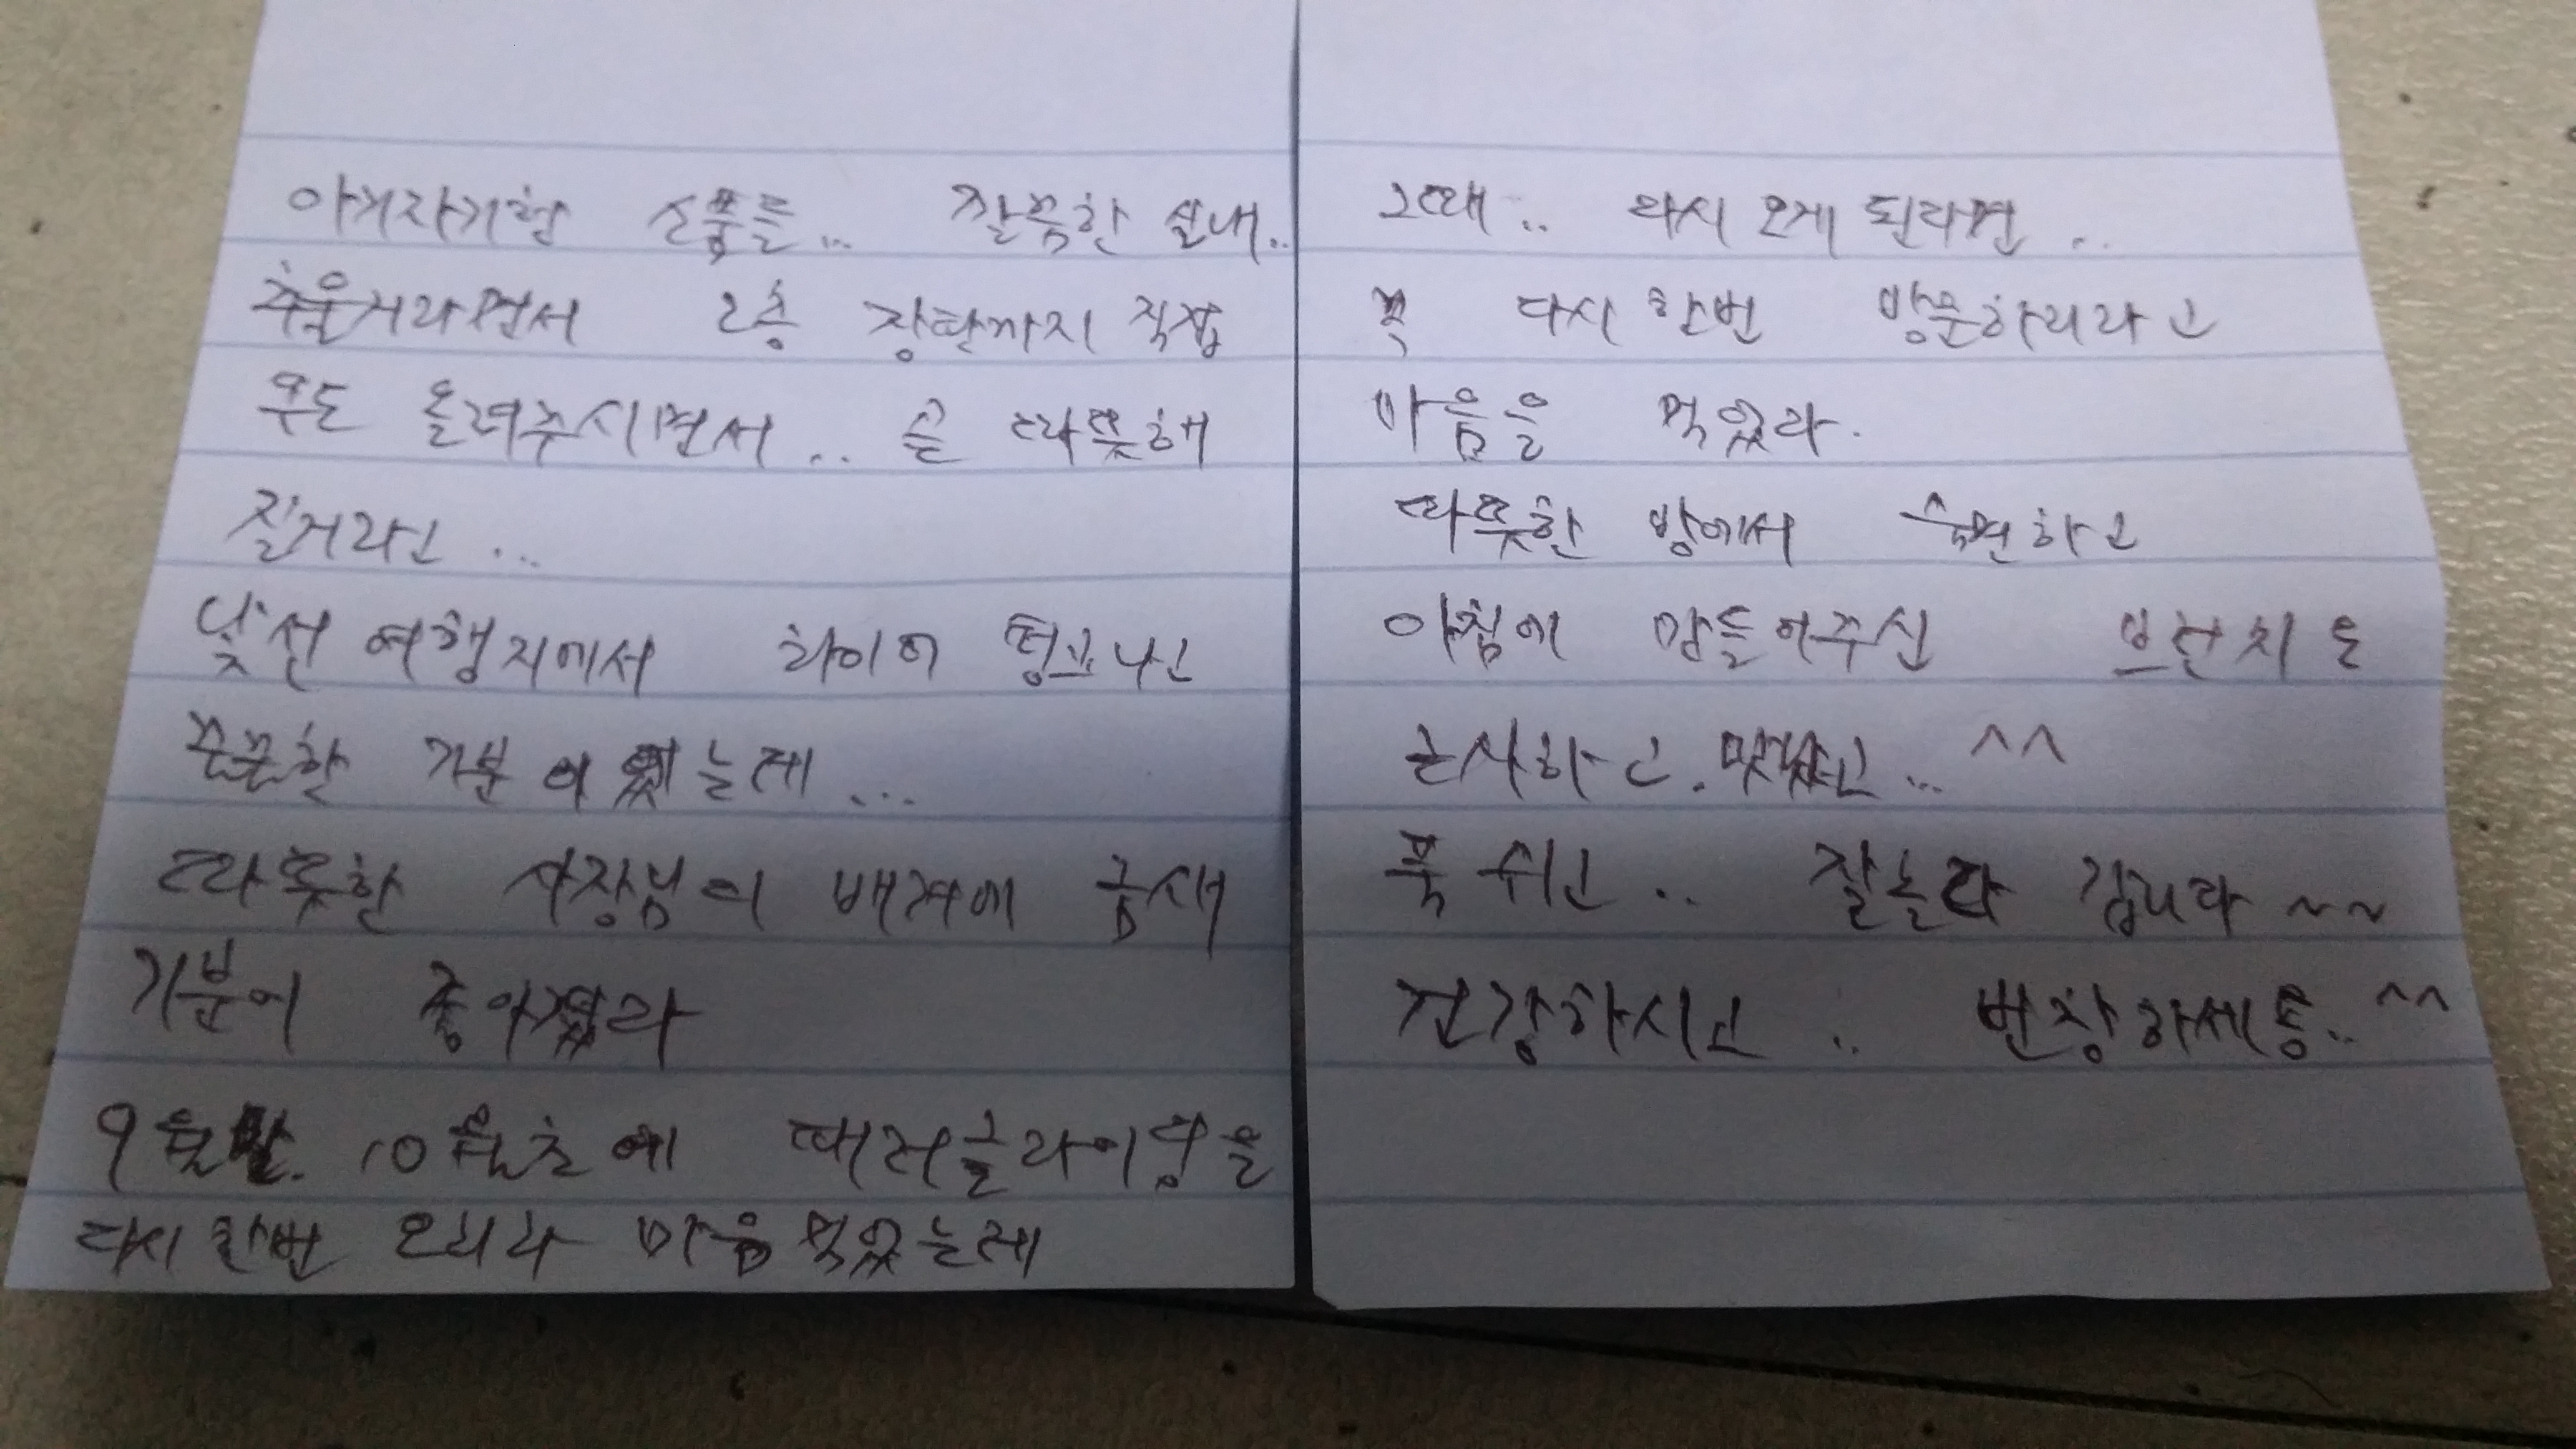 아기자기한 소품들... 깔끔한 실내..
추울거라면서 2층 장판까지 직접
온도 올려주시면서.. 곧 따뜻해
질거라고...
낯선 여행지에서 타이어 펑크나고
꾿꾿한 기분이었는데...
따뜻한 사장님의 배려에 금새
기분이 좋아졌다
9월말. 10월초에 패러글라이딩을
다시 한번 오리라 마음먹었는데
그때.. 다시 오게 된다면..
꼭 다시 한번 방문하리라고
마음을 먹었다.
따뜻한 방에서 숙면하고
아침에 만들어주신 브런치는
근사하고. 맛있었고... ^^
푹 쉬고.. 잘놀다 갑니다~~
건강하시고.. 번창하세용.. ^^